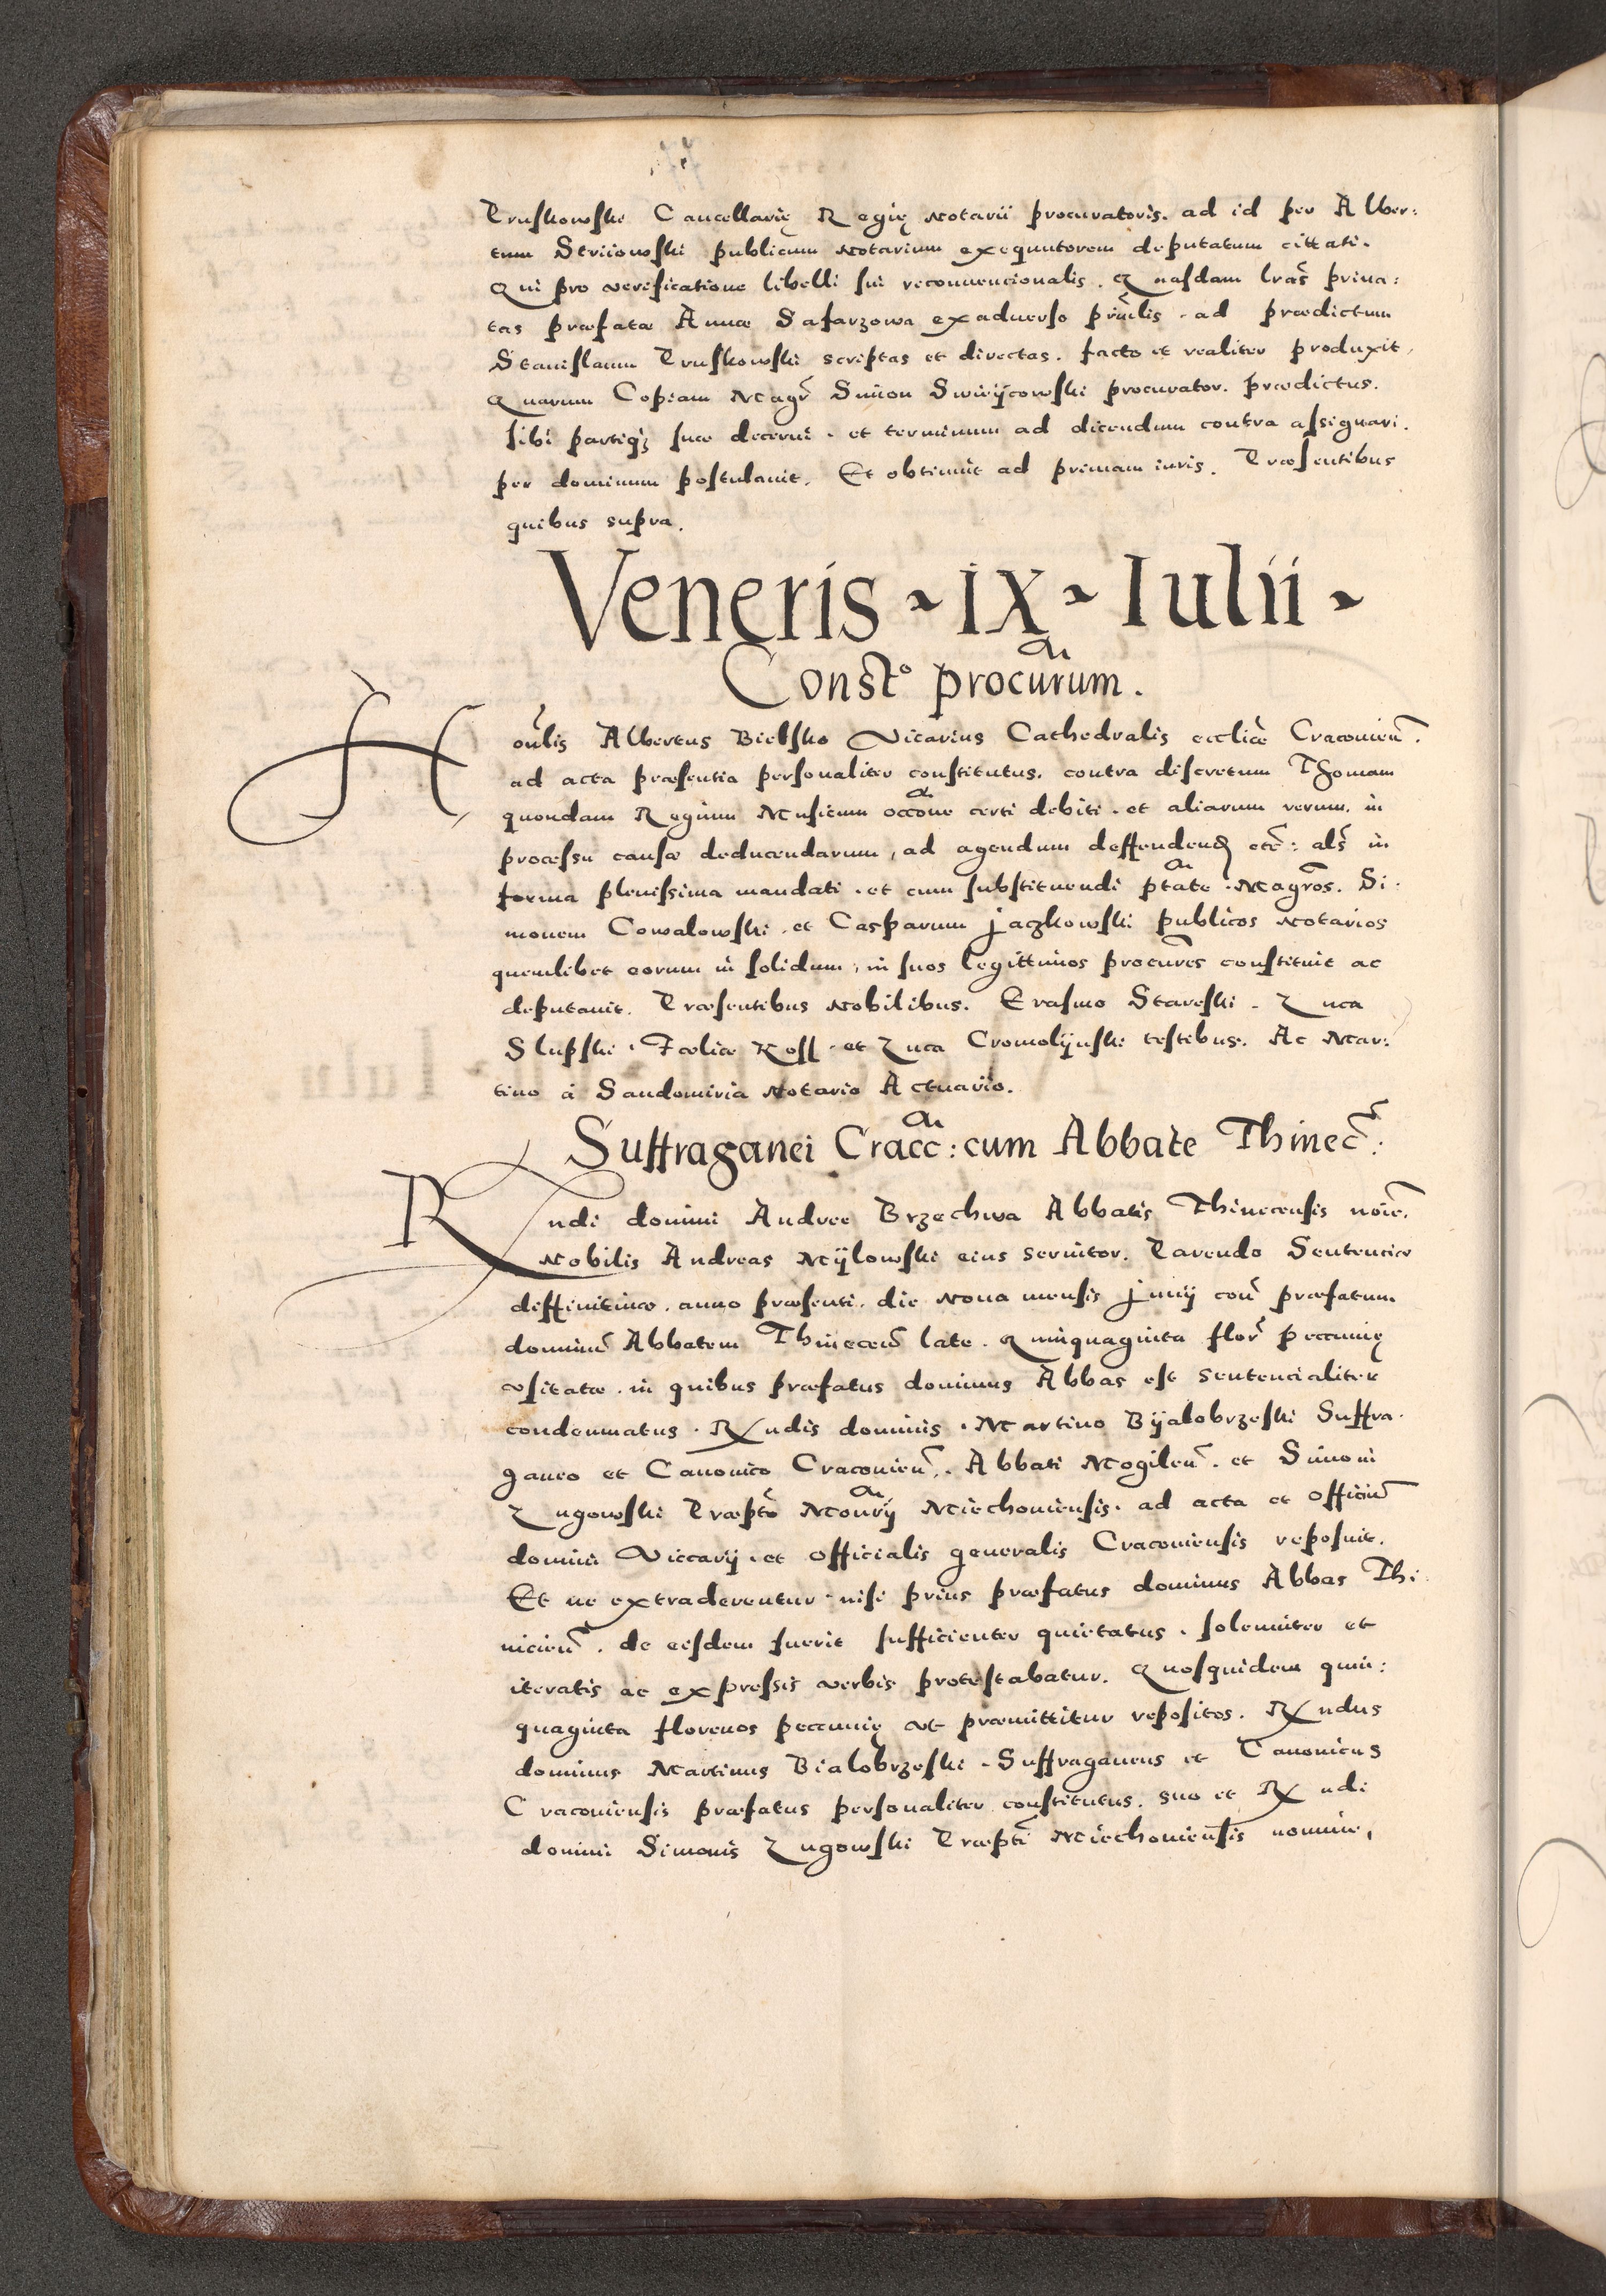 Pruskowski Cancellarię Regię Notarii procuratoris. ad id per Alber:
tum Striiowski publicum Notarium exequutorem deputatum cittati.
Qui pro verificatione libelli sui reconuencionalis. Quasdam lr̃as priua:
tas præfatæ Annæ Safarzowa exaduerso prin̄lis. ad prædictum
Stanislaum Pruskowski scriptas et directas. facto et realiter produxit,
Quarum Copiam Magr̃ Simon Swirÿcowski procurator. prædictus.
sibi partiq; suæ decerni. et terminum ad dicendum contra assignari.
per dominum postulauit. Et obtinuit ad primam iuris. Præsentibus
quibus supra.
Veneris ~ IX ~ Iulii ~
Const̃o procurum.
Hon̄lis Albertus Bielsko Vicarius Cathedralis eccliæ Cracouien̄.
ad acta præsentia personaliter constitutus. contra discretum Thomam
quondam Regium Musicum occone certi debiti. et aliarum rerum. in
processu causæ deducendarum, ad agendum deffendend etc̄: als̄ in
forma plenissima mandati. et cum substituendi ptate. Magr̄os. Si:
monem Cowalowski. et Casparum Jaczkowski publicos Notarios
quemlibet eorum in solidum, in suos legittimos procures constituit ac
deputauit. Præsentibus Nobilibus. Erasmo Stareski. Luca
Slupski. Fælice Koss. et Luca Cromolÿnski testibus. Ac Mar:
tino á Sandomiria Notario Actuario.
Suffraganei Cracc: cum Abbate Thinec̄:
Rndi domini Andreę Brzechwa Abbatis Thinecensis noīe.
Nobilis Andreas Mÿlowski eius seruitor. Parendo Sentenciæ
diffinitiuæ. anno præsenti. die Nona mensis Junÿ con̄ præfatum
dominū Abbatem Thinecen̄ latę. Quinquaginta flor̄ peccunię
vsitatæ. in quibus præfatus dominus Abbas est sentencialiter
condemnatus. Rndis dominis. Martino Bÿalobrzeski Suffra:
ganeo et Canonico Cracouien̄. Abbati Mogilen̄. et Simoni
Lugowski Præpto Monrÿ Miechouiensis. ad acta et officiū
domini Viccarÿ. et officialis generalis Cracouiensis reposuit.
Et ne extraderentur. nisi prius præfatus dominus Abbas Thi:
nicien̄. de eisdem fuerit sufficienter quietatus. solemniter et
iteratis ac expressis verbis protestabatur. Quosquidem quin:
quaginta florenos peccunię vt præmittitur repositos. Rndus
dominus Martinus Bialobrzeski. Suffraganeus et Canonicus
Cracouiensis præfatus personaliter constitutus. suo et Rndi
domini Simonis Lugowski Præpti Miechouiensis nomine,